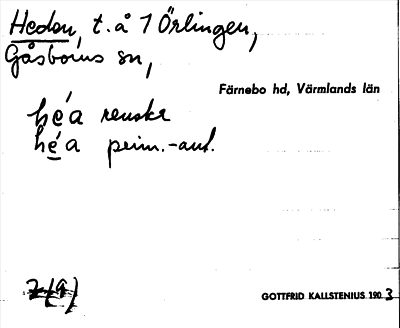 Hedon, t. å 1 Örlingen,
Gåsborns sn,
Färnebo hd, Värmlands län
héa renskr
héa prim.-aut.
GOTTFRID KALLSTENIUS 1903